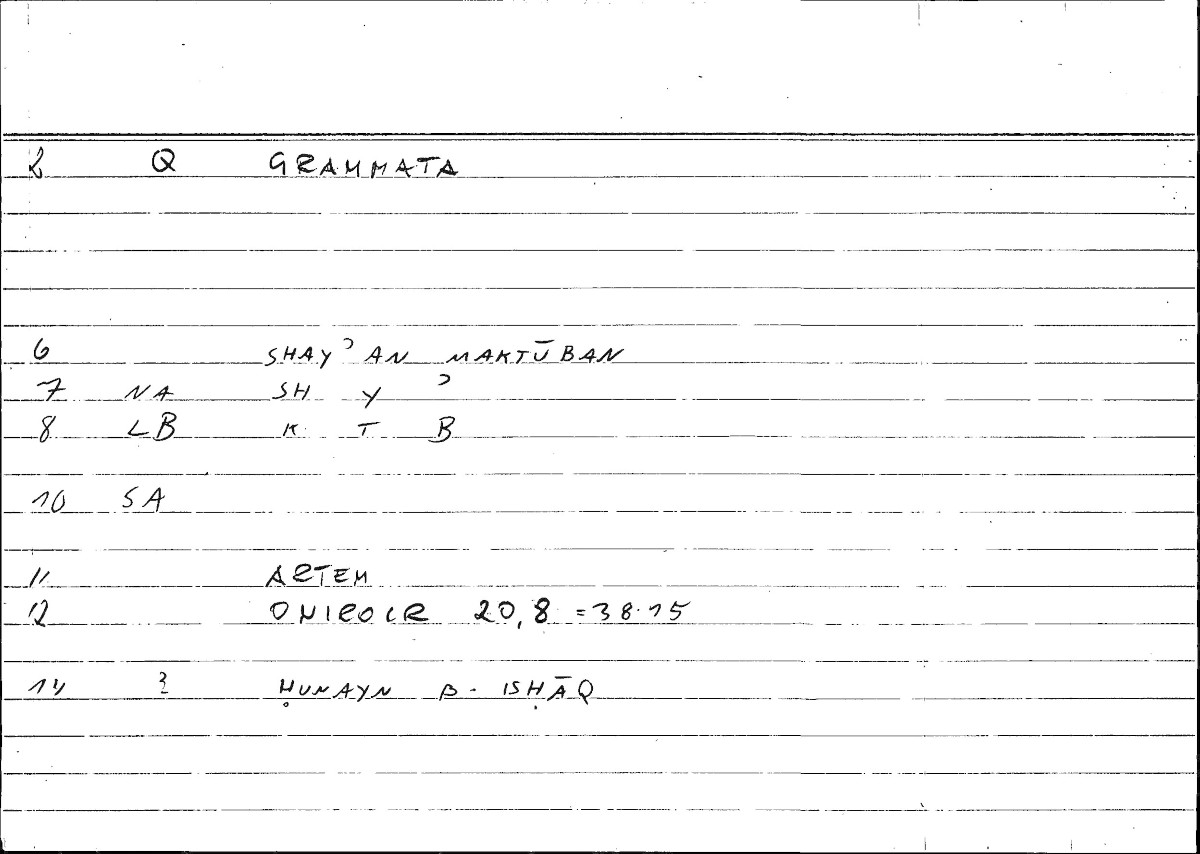 2 Q GRAMMATA
6 SHAYʾAN MAKTŪBAN
7 NA SH Y ʾ
8 LB K T B
10 SA
11 ARTEM
12 ONIROCR 20,8 = 38.15
14 ? ḤUNAYN B. ISḤĀQ